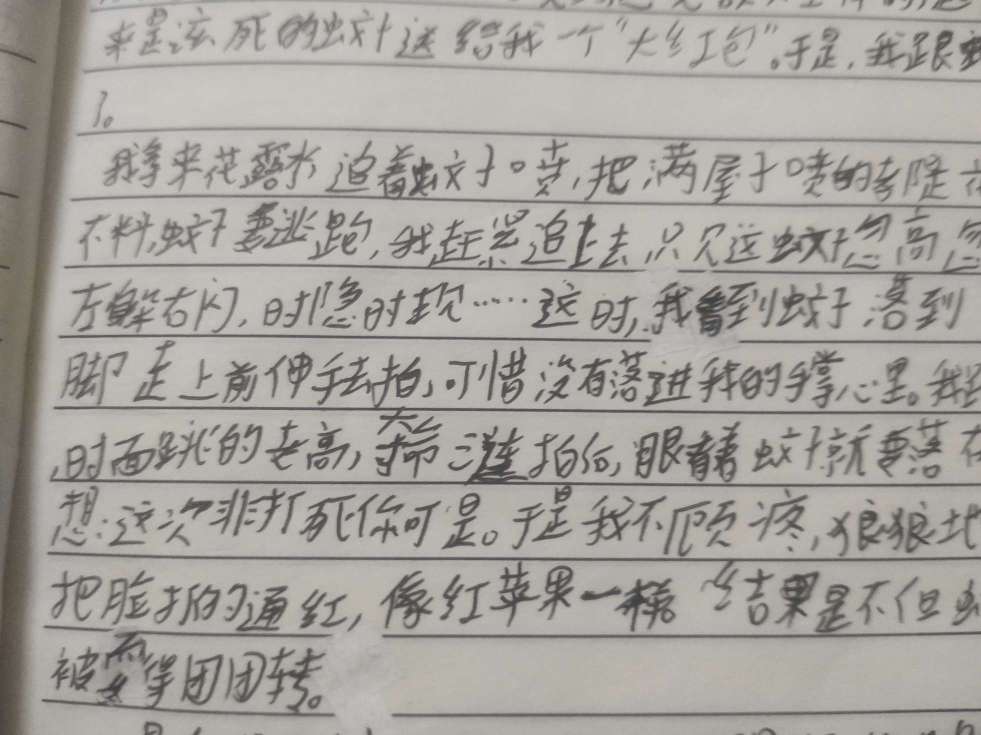 来是该死的蚊子送给我一个“大红包”。于是,我跟
了。
我拿来花露水追着蚊子喷,把满屋子喷的到处
不料,蚊子要逃跑,我赶紧追上去,只见这蚊子忽高忽
左躲右闪,时隐时现……这时,我看到蚊子落到
脚走上前伸手去拍,可惜没有落进我的手掌心里。我
时而跳的老高,时而连拍,眼看着蚊子就要落在
想:这次非打死你可是。于是我不顾疼,狼狼地
把脸拍的通红,像红苹果一样。结果是不但
被耍得团团转。